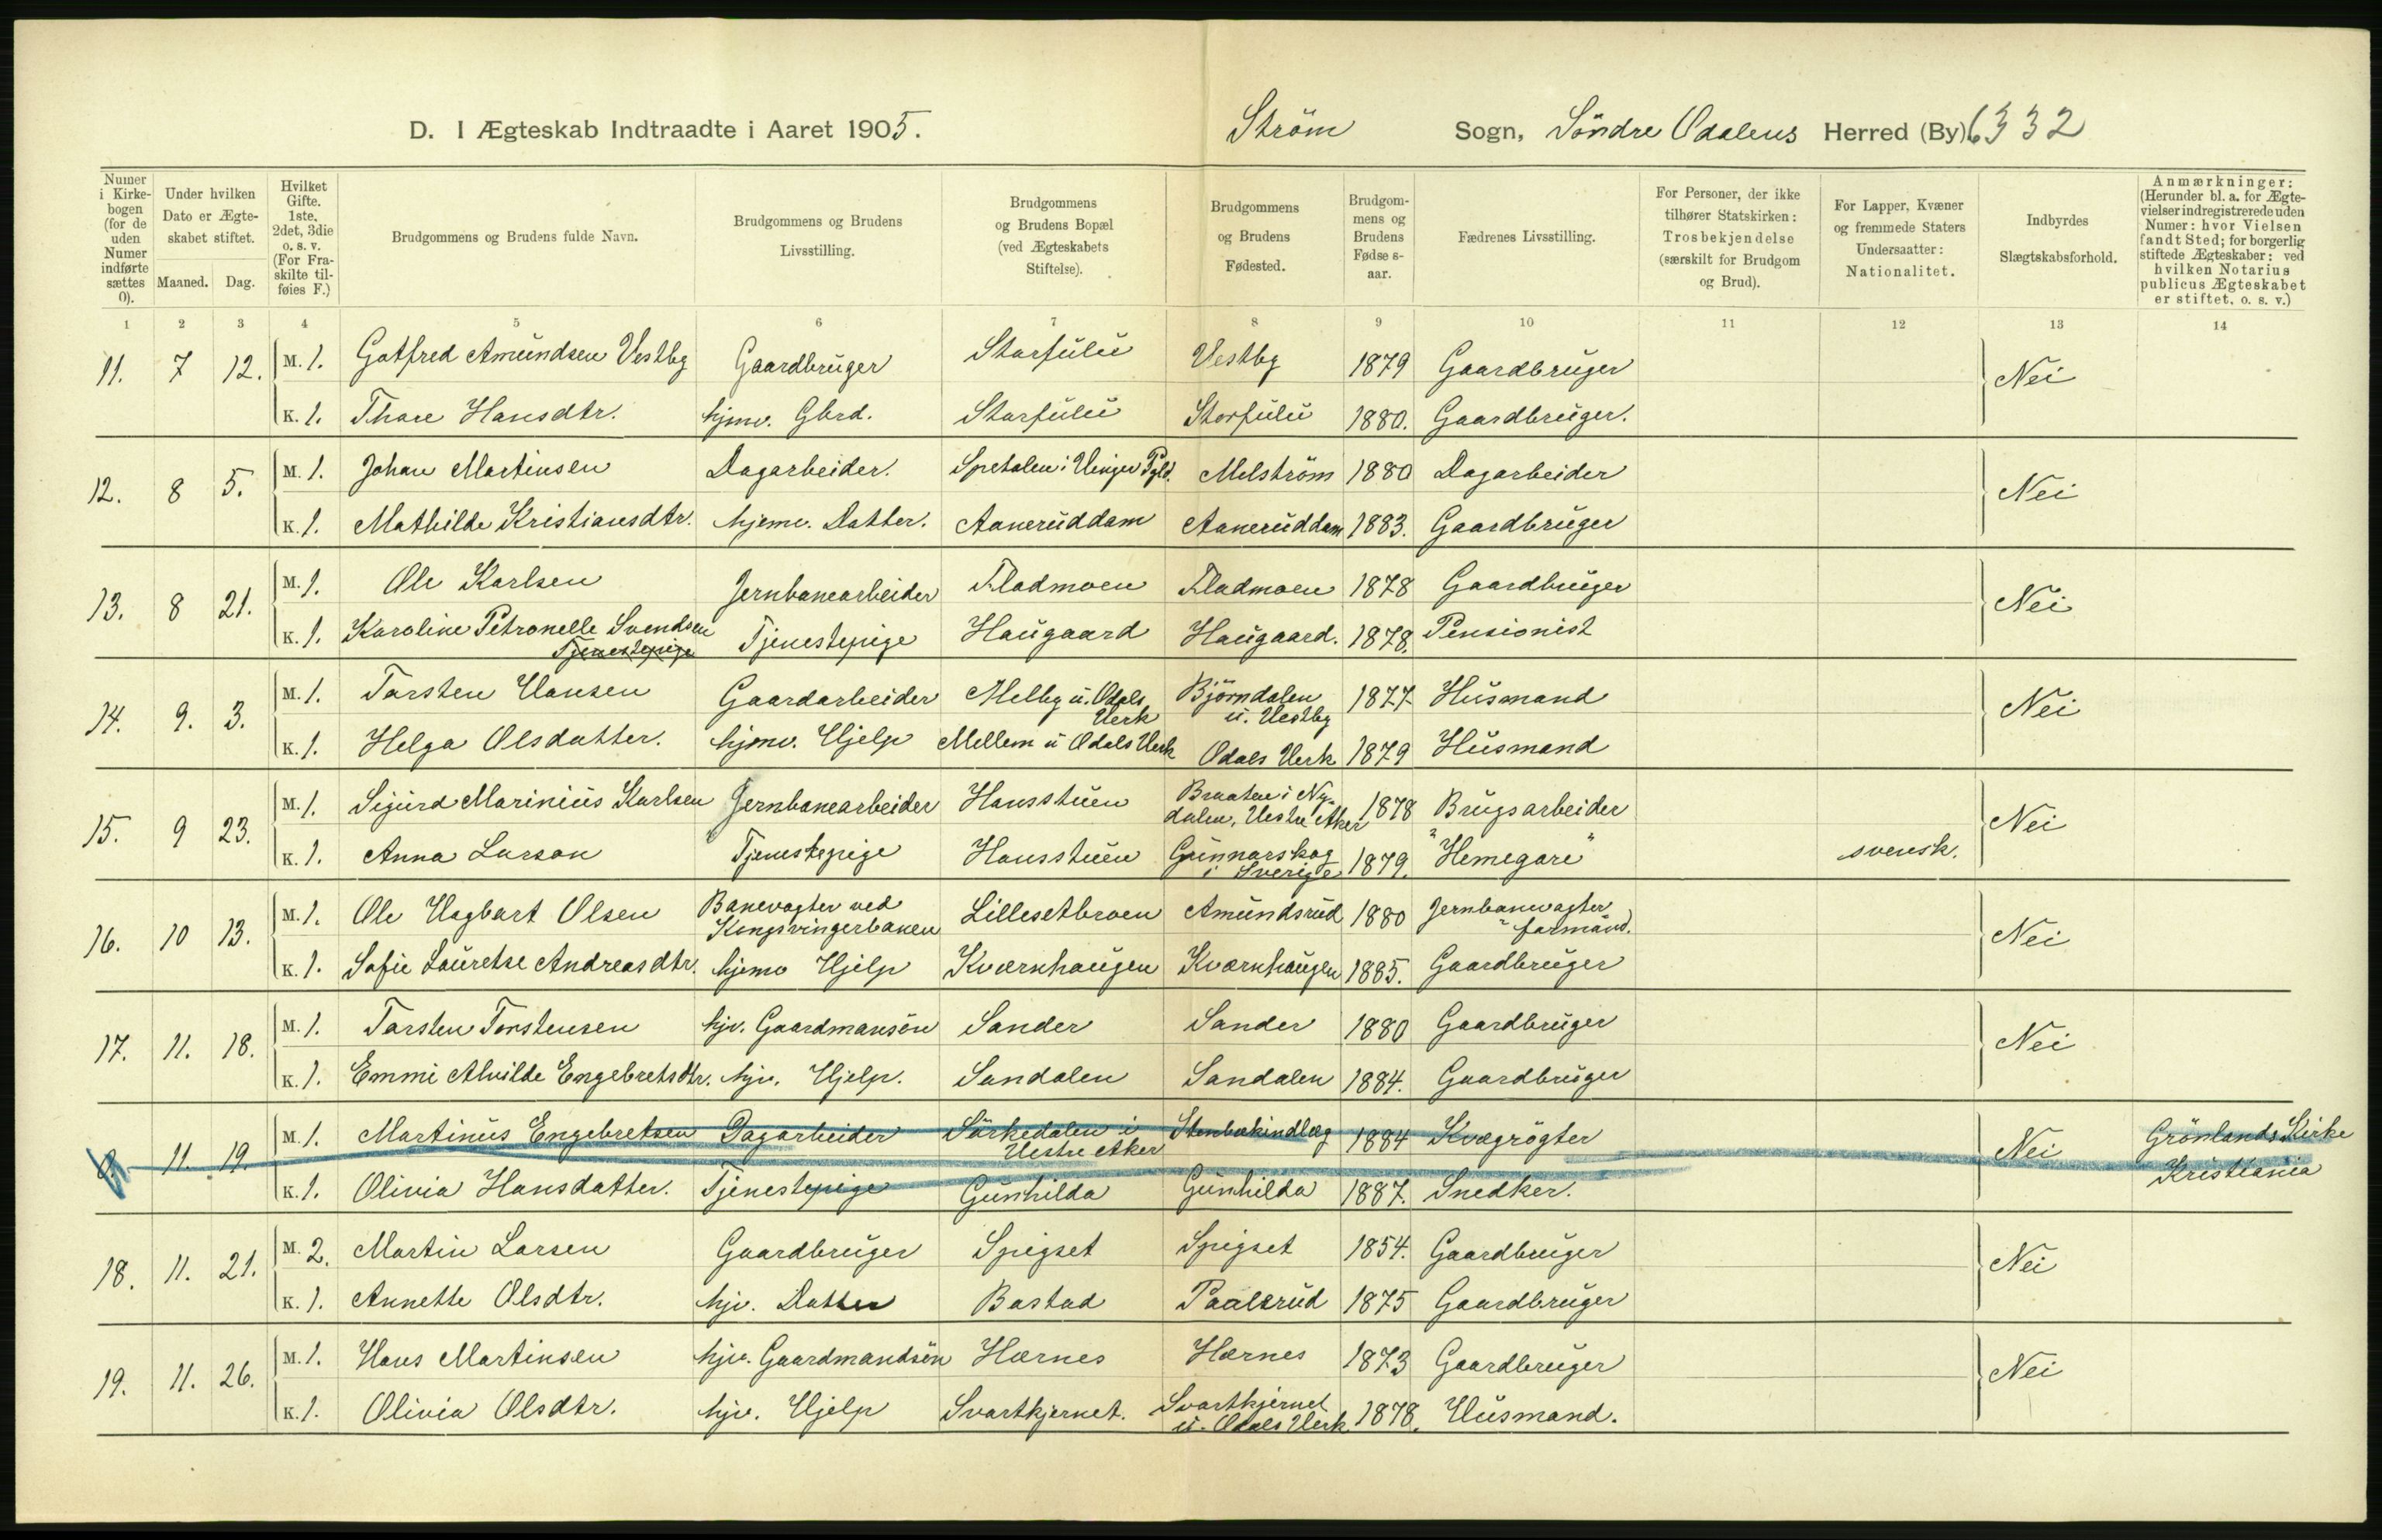 D. I Ægteskab Indtraadte i Aaret 1905. Ström Sogn, Söndre Odalens Herred (By) 6332
Numer i Kirkebogen (for de uden Numer indførte sættes 0).
Under hvilken Dato er Ægteskabet stiftet.
Maaned. Dag.
Hvilket Gifte. 1ste, 2det, 3die o. s. v. (For Fraskilte tilføies F.)
Brudgommens og Brudens fulde Navn.
Brudgommens og Brudens Livsstilling.
Brudgommens og Brudens Bopæl (ved Ægteskabets Stiftelse).
Brudgommens og Brudens Fødested.
Brudgommens og Brudens Fødse s-aar.
Fædrenes Livsstilling.
For Personer, der ikke tilhører Statskirken: Trosbekjendelse (særskilt for Brudgom og Brud).
For Lapper, Kvæner og fremmede Staters Undersaatter: Nationalitet.
Indbyrdes Slægtskabsforhold.
Anmærkninger: (Herunder bl. a. for Ægtevielser indregistrerede uden Numer: hvor Vielsen fandt Sted; for borgerlig stiftede Ægteskaber: ved hvilken Notarius publicus Ægteskabet er stiftet, o. s. v.)
1 2 3 4 5 6 7 8 9 10 11 12 13 14
11. 7 12. M. 1. Gotfred Amundsen Vestby Gaardbruger Storfulu Vestby 1879 Gaardbruger Nei
K. 1. Thore Hansdtr. hjmv. Gbrd. Storfulu Storfulu 1880. Gaardbruger.
12. 8 5. M. 1. Johan Martinsen Dagarbeider. Spetalen i Vinger Pgld. Melström 1880 Dagarbeider Nei
K. 1. Mathilde Kristiansdtr. hjemv. Datter. Aaneruddam Aaneruddam 1883. Gaardbruger
13. 8 21. M. 1. Ole Karlsen Jernbanearbeider Fladmoen Fladmoen 1878 Gaardbruger Nei
K. 1. Karoline Petronelle Svendsen Tjenestepige Haugaard Haugaard. 1878. Pensionist
Tjenestepige
14. 9. 3. M. 1. Torsten Hansen Gaardarbeider Melby u. Odals Verk Björndalen u. Vestby 1877 Husmand Nei
K. 1. Helga Olsdatter. hjmv. Hjelp Mellem u Odals Verk Odals Verk 1879 Husmand
15. 9 23. M. 1. Sigurd Marinius Karlsen Jernbanearbeider Hansstuen Braaten i Nydalen, Vestre Aker 1878 Brugsarbeider Nei
K. 1. Anna Larson Tjenestepige Hansstuen Gunnarskog i Sverige 1879. "Hemegare" svensk.
16. 10 13. M. 1. Ole Hagbart Olsen Banevogter ved Kongsvingerbanen Lillesetbroen Amundsrud 1880 Jernbanevogter "formand. Nei
K. 1. Sofie Lauretse Andreasdtr. hjemv Hjelp Kværnhaugen Kværnhaugen 1885. Gaardbruger
17. 11. 18. M. 1. Torsten Torstensen hjv. Gaardmansön Sander Sander 1880 Gaardbruger Nei
K. 1. Emmi Alvilde Engebretsdtr. hjv. Hjelp. Sandalen Sandalen 1884. Gaardbruger
11. 19. M. 1. Martinus Engebretsen Dagarbeider Sörkedalen i Vestre Aker Stenbækindlæg 1884 Kvægrögter Nei Grönlands Kirke Kristiania
K. 1. Olivia Hansdatter. Tjenestepige Gunhilda Gunhilda 1887. Snedker.
18. 11. 21. M. 2. Martin Larsen Gaardbruger Spigset Spigset 1854. Gaardbruger Nei
K. 1. Annette Olsdtr. hjv. Datter Bastad Paalsrud 1875 Gaardbruger
19. 11. 26. M. 1. Hans Martinsen hjv. Gaardmandsön Hornes Hornes 1873 Gaardbruger Nei
K. 1. Olivia Olsdtr. hjv. Hjelp Svartkjernet. Svartkjernet u. Odals Verk 1878. Husmand.